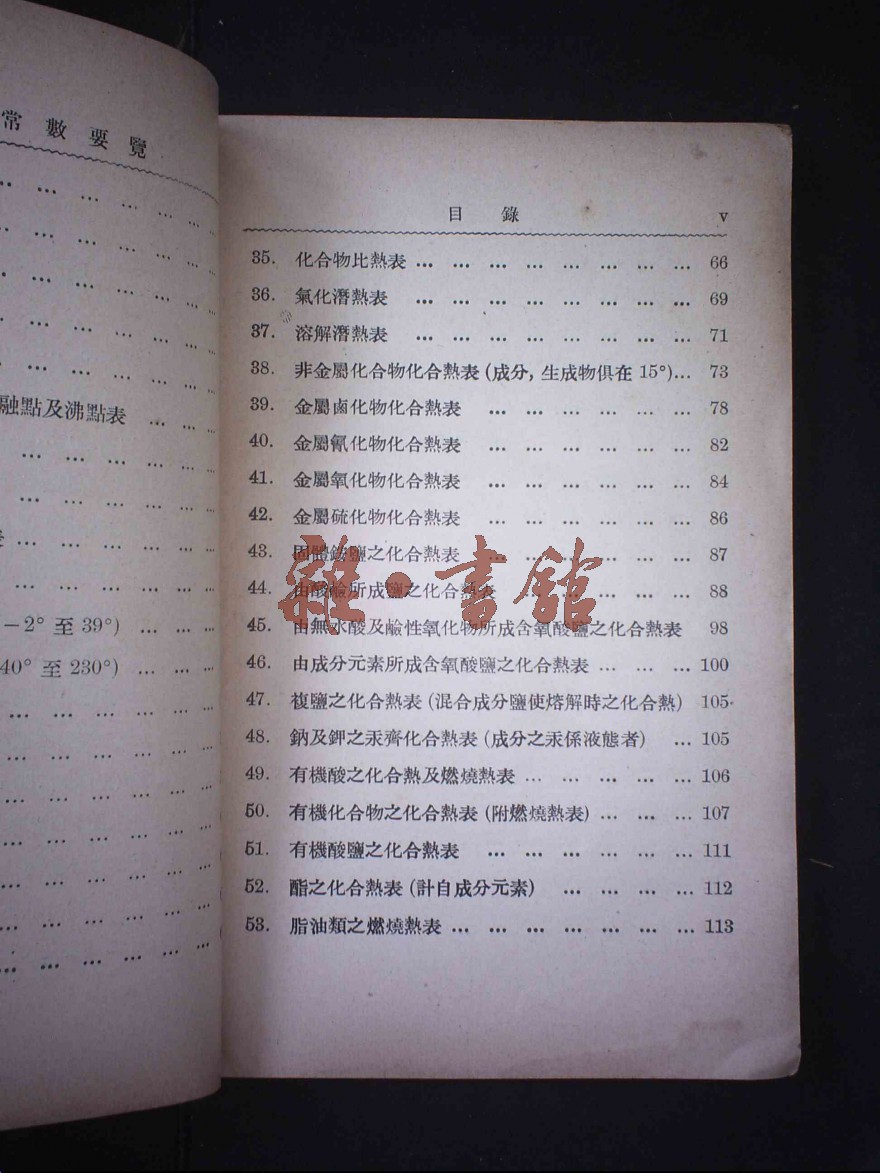 常數要覽
融點及沸點表 … …
−2° 至 39°) … … …
40° 至 230°) … … …
目 錄 v
35. 化合物比熱表 … … … … … … … … 66
36. 氣化潛熱表 … … … … … … … … 69
37. 溶解潛熱表 … … … … … … … … 71
38. 非金屬化合物化合熱表 (成分, 生成物俱在 15°)… 73
39. 金屬鹵化物化合熱表 … … … … … … 78
40. 金屬氰化物化合熱表 … … … … … … 82
41. 金屬氧化物化合熱表 … … … … … … 84
42. 金屬硫化物化合熱表 … … … … … … 86
43. 固體銨鹽之化合熱表 … … … … … … 87
44. 由酸鹼所成鹽之化合熱表 … … … … … 88
雜·書館
45. 由無水酸及鹼性氧化物所成含氧酸鹽之化合熱表 98
46. 由成分元素所成含氧酸鹽之化合熱表 … … … 100
47. 複鹽之化合熱表 (混合成分鹽使熔解時之化合熱) 105
48. 鈉及鉀之汞齊化合熱表 (成分之汞係液態者) … 105
49. 有機酸之化合熱及燃燒熱表 … … … … … 106
50. 有機化合物之化合熱表 (附燃燒熱表) … … … 107
51. 有機酸鹽之化合熱表 … … … … … … 111
52. 酯之化合熱表 (計自成分元素) … … … … 112
53. 脂油類之燃燒熱表 … … … … … … … 113